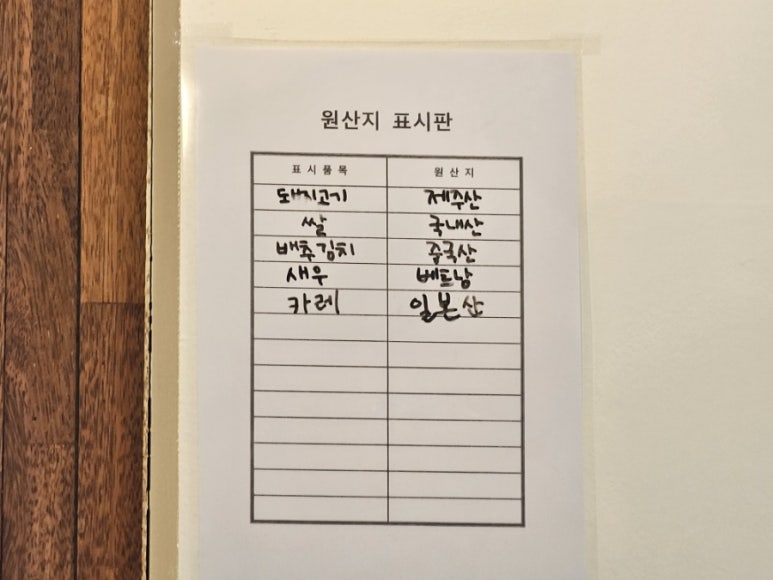 원산지 표시판
표시품목 원산지
돼지고기 제주산
쌀 국내산
배추김치 중국산
새우 베트남
카레 일본산